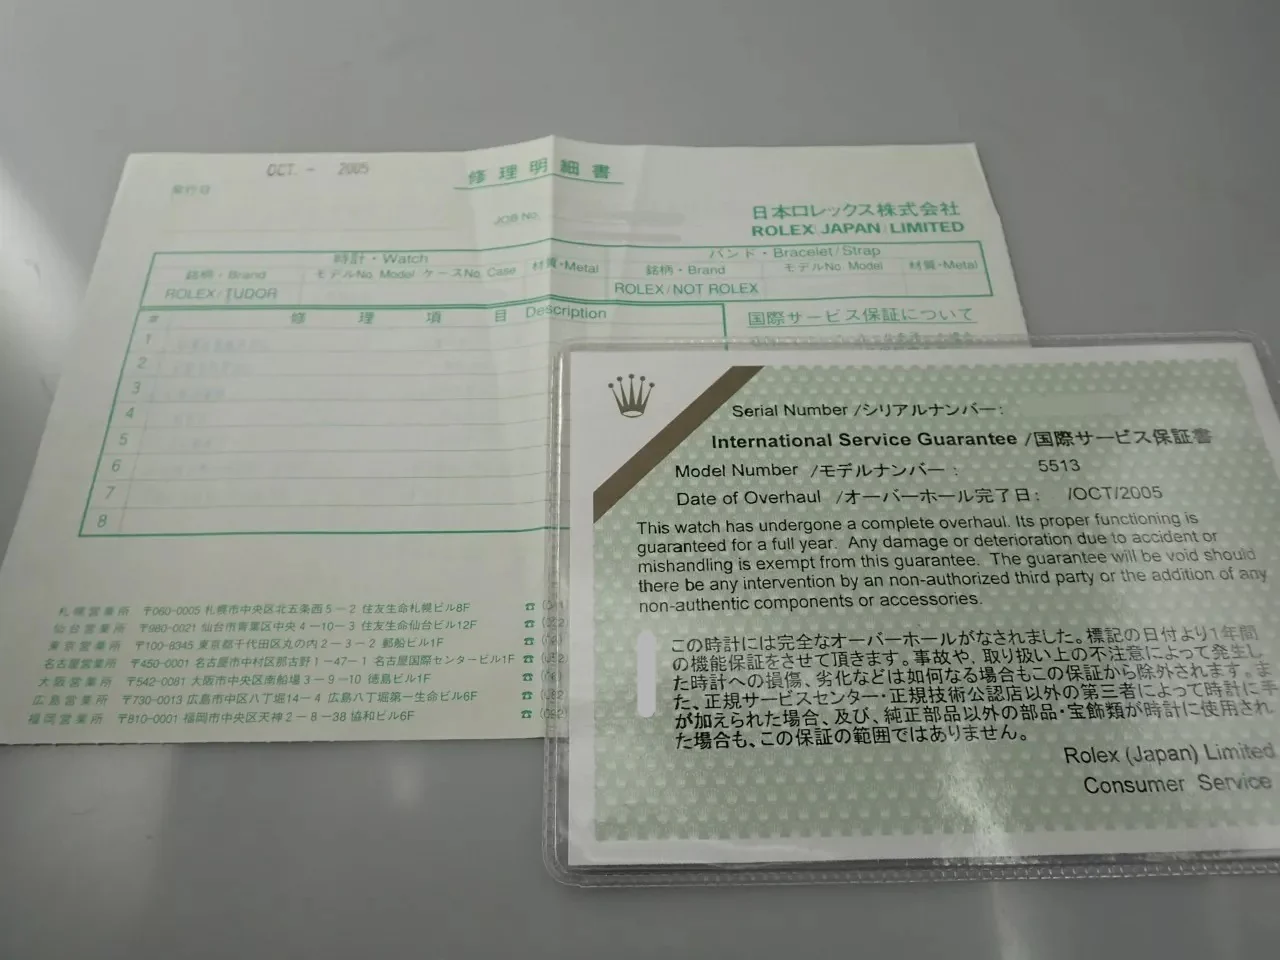 OCT. - 2005
修理明細書
発行日
JOB No.
日本ロレックス株式会社
ROLEX (JAPAN) LIMITED
時計・Watch
バンド・Bracelet/Strap
銘柄・Brand
モデルNo. Model
ケースNo. Case
材質・Metal
銘柄・Brand
モデルNo. Model
材質・Metal
ROLEX/TUDOR
ROLEX/NOT ROLEX
# 修理項目 Description
国際サービス保証について
1
2
3
4
5
6
7
8
札幌営業所 〒060-0005 札幌市中央区北五条西5-2 住友生命札幌ビル8F ☎
仙台営業所 〒980-0021 仙台市青葉区中央4-10-3 住友生命仙台ビル12F ☎
東京営業所 〒100-8345 東京都千代田区丸の内2-3-2 郵船ビル1F ☎
名古屋営業所 〒450-0001 名古屋市中村区那古野1-47-1 名古屋国際センタービル1F ☎
大阪営業所 〒542-0081 大阪市中央区南船場3-9-10 徳島ビル1F ☎
広島営業所 〒730-0013 広島市中区八丁堀14-4 広島八丁堀第一生命ビル6F ☎
福岡営業所 〒810-0001 福岡市中央区天神2-8-38 協和ビル6F ☎
Serial Number /シリアルナンバー:
International Service Guarantee /国際サービス保証書
Model Number /モデルナンバー : 5513
Date of Overhaul /オーバーホール完了日: /OCT/2005
This watch has undergone a complete overhaul. Its proper functioning is
guaranteed for a full year. Any damage or deterioration due to accident or
mishandling is exempt from this guarantee. The guarantee will be void should
there be any intervention by an non-authorized third party or the addition of any
non-authentic components or accessories.
この時計には完全なオーバーホールがなされました。標記の日付より1年間
の機能保証をさせて頂きます。事故や、取り扱い上の不注意によって発生し
た時計への損傷、劣化などは如何なる場合もこの保証から除外されます。ま
た、正規サービスセンター・正規技術公認店以外の第三者によって時計に手
が加えられた場合、及び、純正部品以外の部品・宝飾類が時計に使用され
た場合も、この保証の範囲ではありません。
Rolex (Japan) Limited
Consumer Service